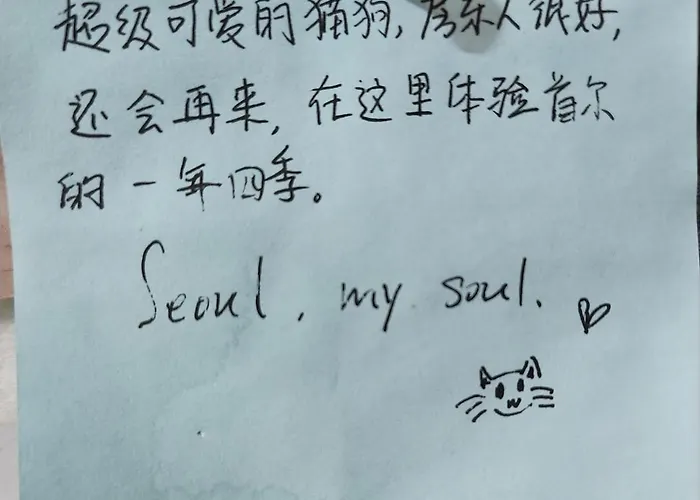 超级可爱的猫狗,房东人很好,
还会再来,在这里体验首尔
的一年四季。
Seoul, my soul.